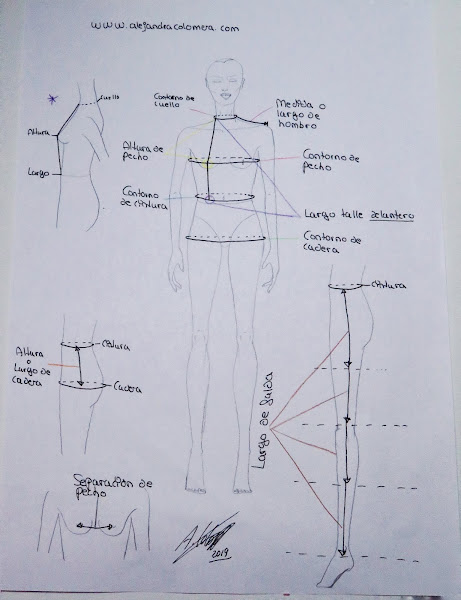 www.alejandracolomera.com
Cuello
Altura
Largo
Contorno de
cuello
Medida o
largo de
hombro
Altura de
pecho
Contorno de
pecho
Contorno
de cintura
Largo talle delantero
Contorno de
cadera
Cintura
Cintura
Altura
o
Largo de
cadera
Cadera
Largo de falda
Separación de
pecho
2019